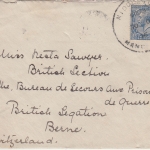 Miss Nesta Sawyer.
British Section
The Bureau de Secours Aux Prison
de Guerre
British Legation
Berne.
Switzerland.